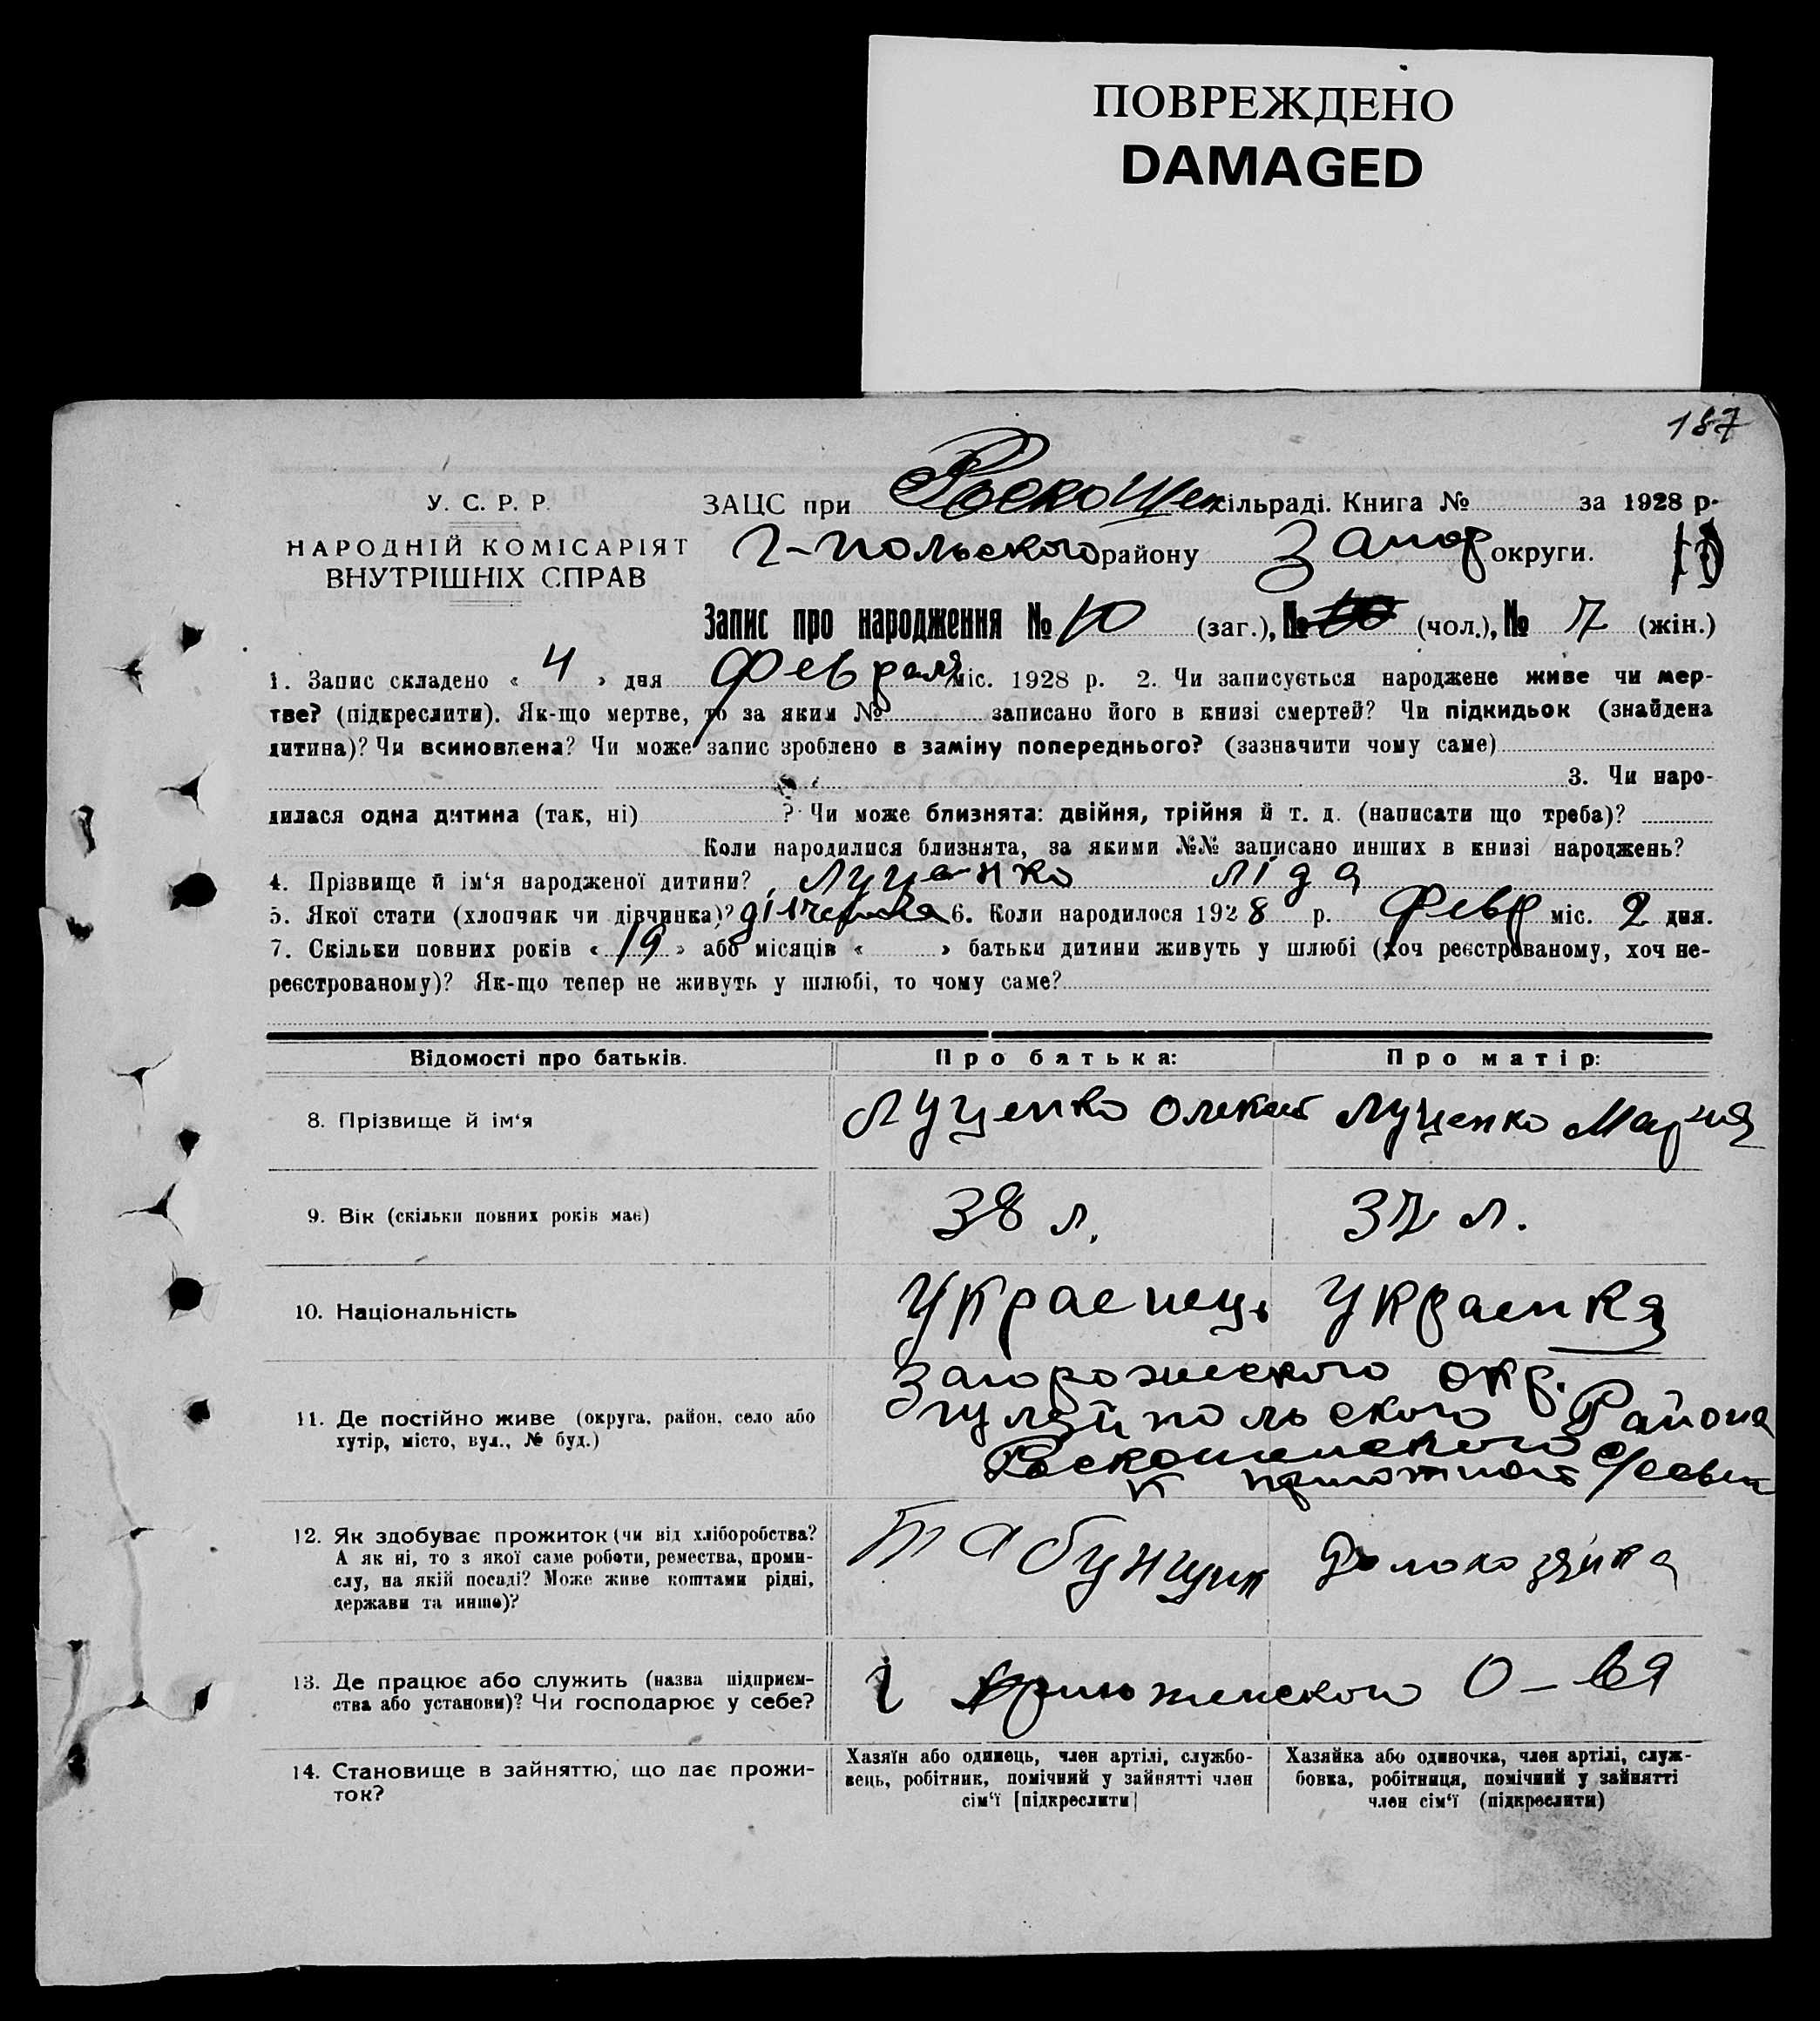 ПОВРЕЖДЕНО
DAMAGED
187
У. С. Р. Р.
НАРОДНІЙ КОМІСАРІЯТ
ВНУТРІШНІХ СПРАВ
ЗАЦС при Роскошен сільраді. Книга № за 1928 р.
Г-польского району Запор округи.
10
Запис про народження № 10 (заг.), № (чол.), № 7 (жін.)
1. Запис складено « 4 » дня Февраля міс. 1928 р. 2. Чи записується народжене живе чи мер-
тве? (підкреслити). Як-що мертве, то за яким № записано його в книзі смертей? Чи підкидьок (знайдена
дитина)? Чи всиновлена? Чи може запис зроблено в заміну попереднього? (зазначити чому саме)
3. Чи наро-
дилася одна дитина (так, ні) ? Чи може близнята: двійня, трійня й т. д. (написати що треба)?
Коли народилися близнята, за якими №№ записано инших в книзі народжень?
4. Прізвище й ім‘я народженої дитини? Луценко Ліда
5. Якої стати (хлопчик чи дівчинка)? 6. Коли народилося 1928 р. Февр міс. 2 дня.
7. Скільки повних років « 19 » або місяців « » батьки дитини живуть у шлюбі (хоч реєстрованому, хоч не-
реєстрованому)? Як-що тепер не живуть у шлюбі, то чому саме?
Відомості про батьків. Про батька: Про матір:
8. Прізвище й ім‘я Луценко Луценко Мария
9. Вік (скільки повних років має) 38 л. 37 л.
10. Національність Украенець Украенка
11. Де постійно живе (округа, район, село або
хутір, місто, вул., № буд.)
Запорожского окр.
Гуляйпольского Района
Роскошенского с/совета
12. Як здобуває прожиток (чи від хліборобства?
А як ні, то з якої саме роботи, ремества, проми-
слу, на якій посаді? Може живе коштами рідні,
держави та инше)?
Табунщик Домохозяйка
13. Де працює або служить (назва підприєм-
ства або установи)? Чи господарює у себе?
О-ва
14. Становище в зайняттю, що дає прожи-
ток?
Хазяїн або одинець, член артілі, службо-
вець, робітник, помічний у зайнятті член
сім‘ї [підкреслити]
Хазяйка або одиночка, член артілі, служ-
бовка, робітниця, помічний у зайнятті
член сім‘ї (підкреслити)